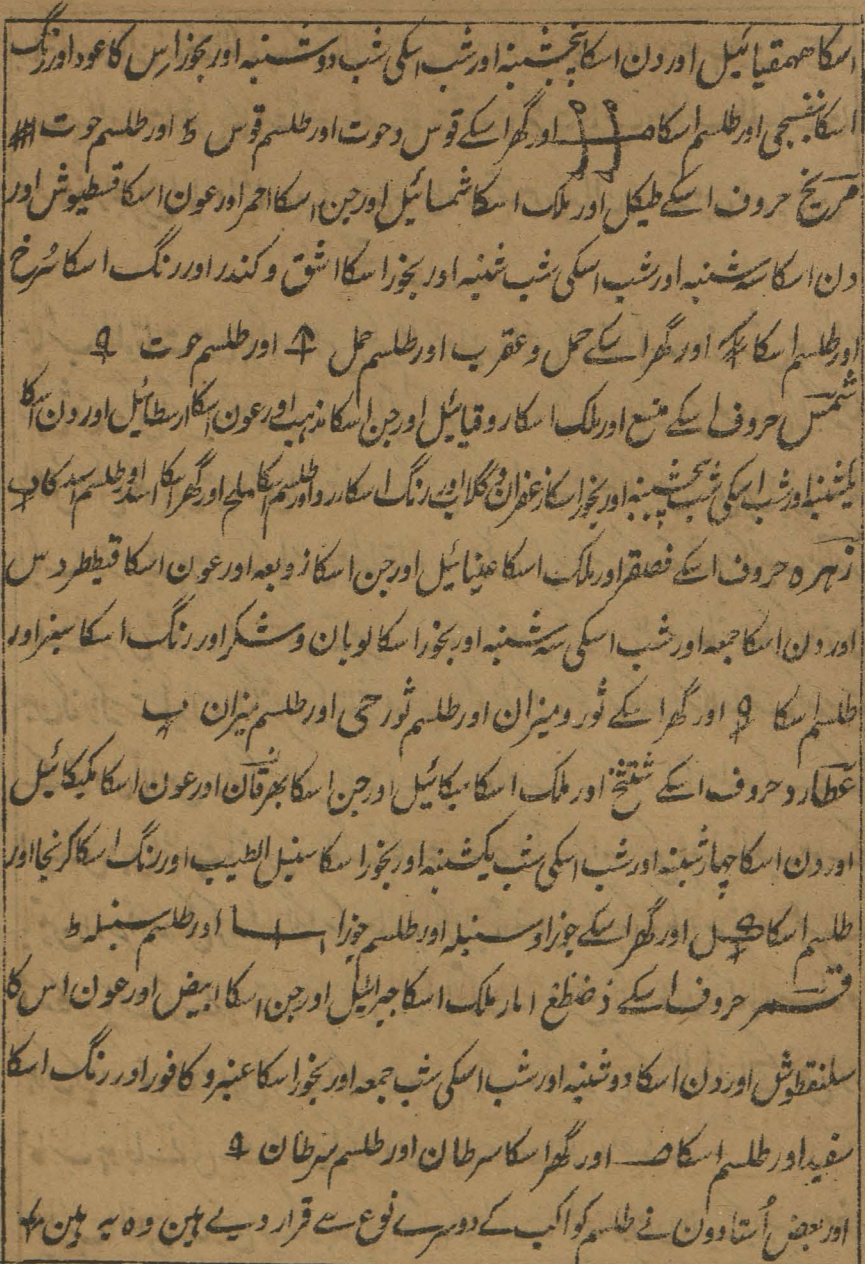 اسکا ھمقیائیل اور دن اسکا پنجشنبہ اور شب اسکی شب دوشنبہ اور بخور اس کا عود اور رنگ
اسکا بنفسجی اور طلسم اسکا اور گھر اسکے قوس و حوت اور طلسم قوس اور طلسم حوت
مریخ حروف اسکے طیکل اور ملک اسکا شمسائیل اور جن اسکا احمر اور عون اسکا قسطیوش اور
دن اسکا سہ شنبہ اور شب اسکی شب شنبہ اور بخور اسکا اشق و کندر اور رنگ اسکا سُرخ
اور طلسم اسکا اور گھر اسکے حمل و عقرب اور طلسم حمل اور طلسم حوت
شمس حروف اسکے منسع اور ملک اسکا روقیائیل اور جن اسکا مذہب اور عون اسکا ارسطائیل اور دن اسکا
یکشنبہ اور شب اسکی شب پنجشنبہ اور بخور اسکا زعفران و گلاب اور رنگ اسکا زرد اور طلسم اسکا اور گھر اسکا اسد اور طلسم اسد کا
زہرہ حروف اسکے فصقر اور ملک اسکا عینائیل اور جن اسکا زوبعہ اور عون اسکا قیطردس
اور دن اسکا جمعہ اور شب اسکی سہ شنبہ اور بخور اسکا لوبان و شکر اور رنگ اسکا سبز اور
طلسم اسکا اور گھر اسکے ثور و میزان اور طلسم ثور اور طلسم میزان
عطارد حروف اسکے شتثخ اور ملک اسکا میکائیل اور جن اسکا برقان اور عون اسکا
اور دن اسکا چہارشنبہ اور شب اسکی شب یکشنبہ اور بخور اسکا سنبل الطیب اور رنگ اسکا کرنجا اور
طلسم اسکا اور گھر اسکے جوزا و سنبلہ اور طلسم جوزا اور طلسم سنبلہ
قمر حروف اسکے ذضظغ ا مار ملک اسکا جبرائیل اور جن اسکا ابیض اور عون اس کا
سلنقطوش اور دن اسکا دوشنبہ اور شب اسکی شب جمعہ اور بخور اسکا عنبر و کافور اور رنگ اسکا
سفید اور طلسم اسکا اور گھر اسکا سرطان اور طلسم سرطان
اور بعض اُستادون نے طلسم کواکب کے دوسرے نوع سے قرار دیے ہین وہ یہ ہین